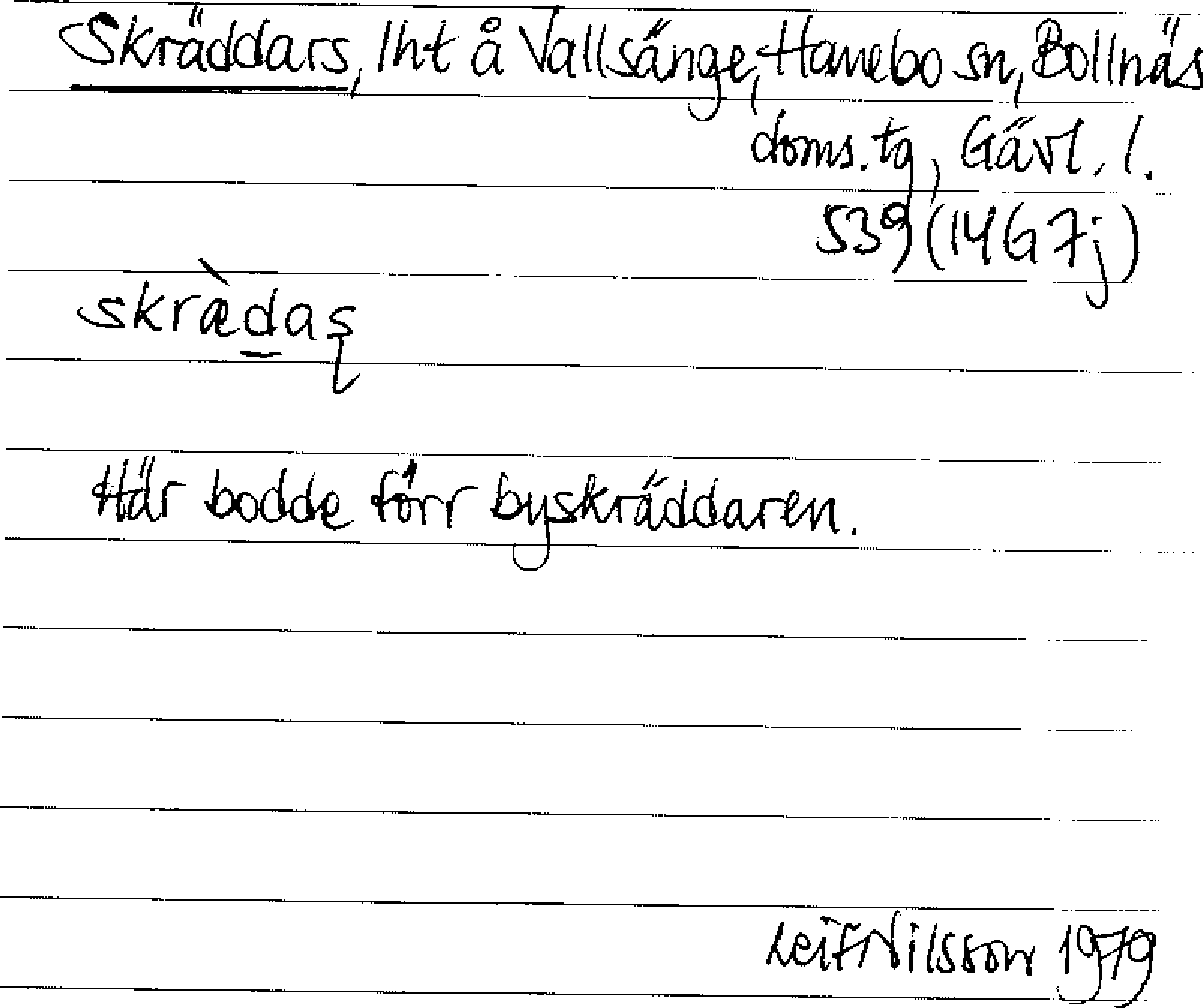 Skräddars, lht å Vallsänge, Hanebo sn, Bollnäs
doms.tg, Gävl. l.
539 (14G 7j)
skræ̀d̲aʂ
Här bodde förr byskräddaren.
Leif Nilsson 1979